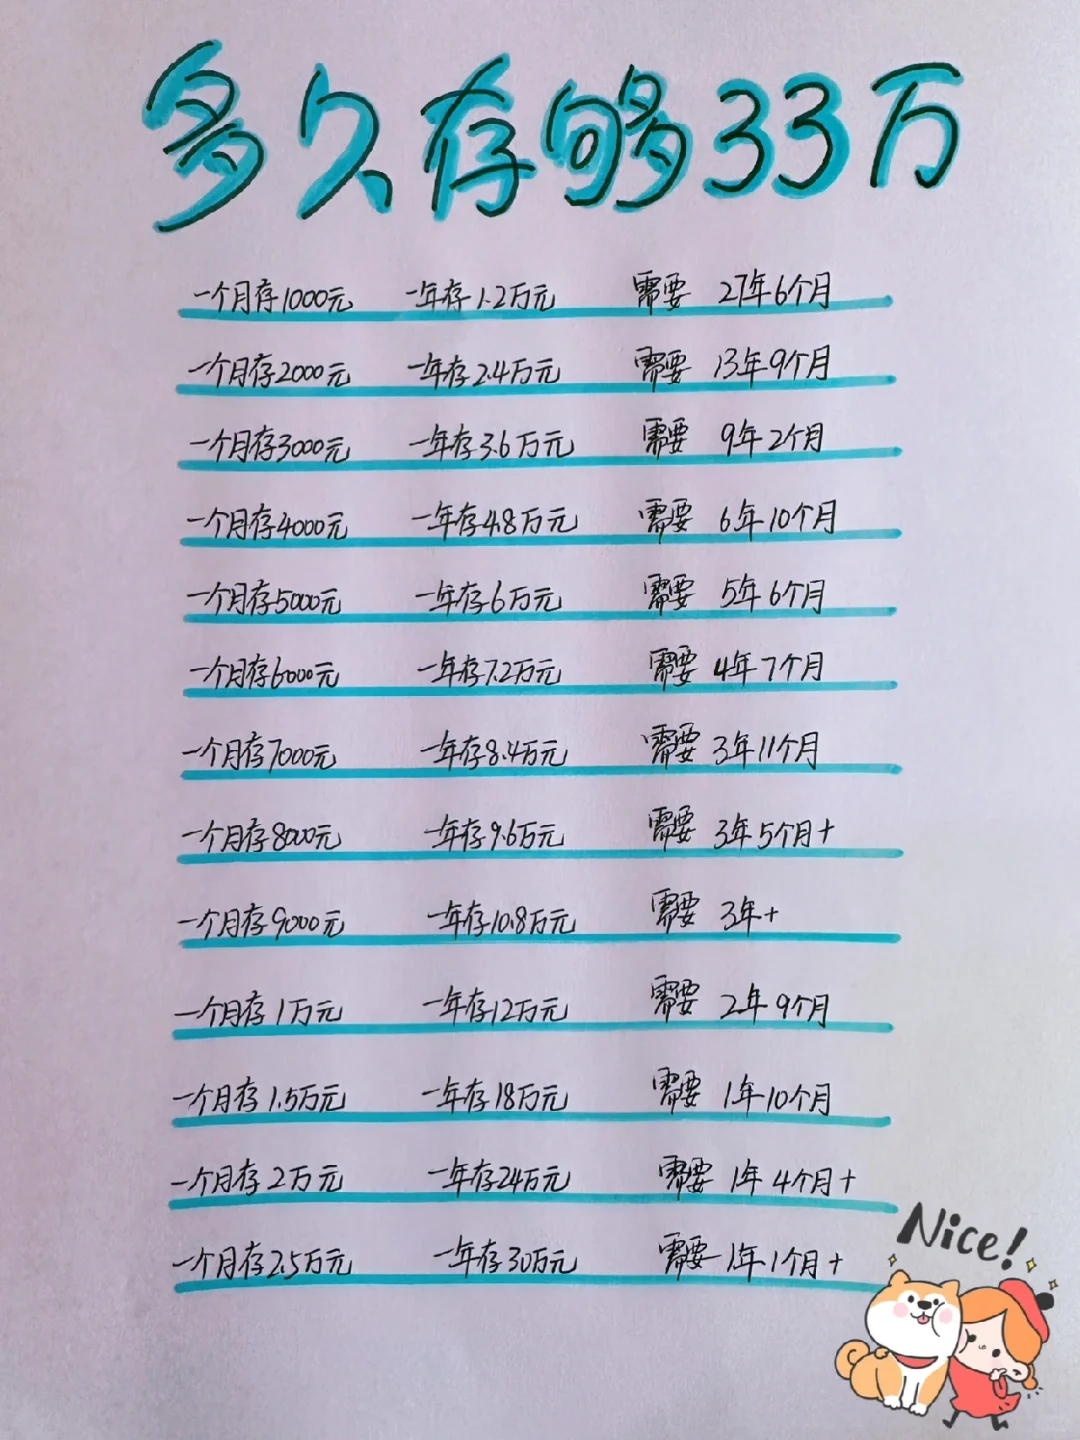 多久存够33万
一个月存1000元 一年存1.2万元 需要 27年6个月
一个月存2000元 一年存2.4万元 需要 13年9个月
一个月存3000元 一年存3.6万元 需要 9年2个月
一个月存4000元 一年存4.8万元 需要 6年10个月
一个月存5000元 一年存6万元 需要 5年6个月
一个月存6000元 一年存7.2万元 需要 4年7个月
一个月存7000元 一年存8.4万元 需要 3年11个月
一个月存8000元 一年存9.6万元 需要 3年5个月+
一个月存9000元 一年存10.8万元 需要 3年+
一个月存1万元 一年存12万元 需要 2年9个月
一个月存1.5万元 一年存18万元 需要 1年10个月
一个月存2万元 一年存24万元 需要 1年4个月+
一个月存2.5万元 一年存30万元 需要 1年1个月+
Nice!